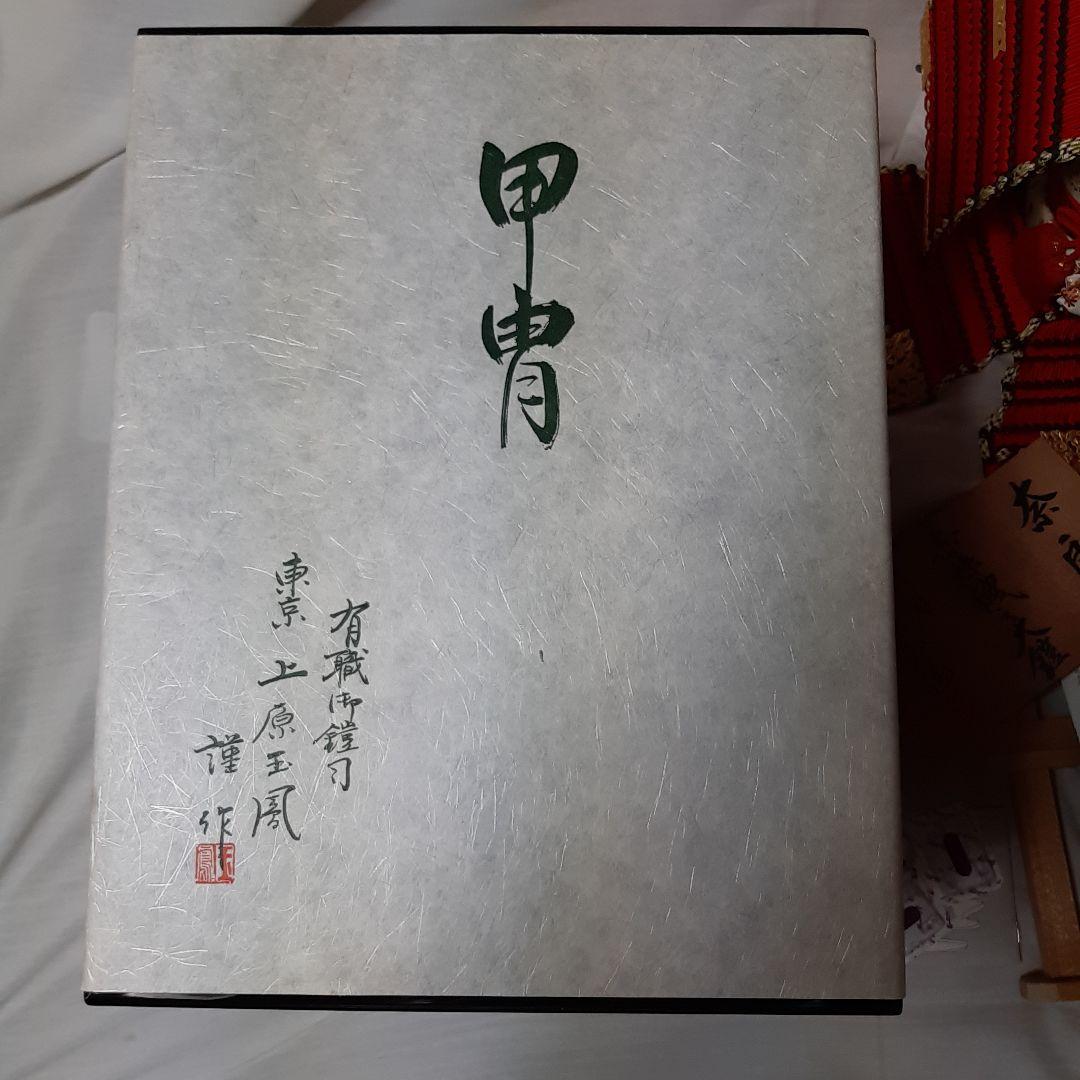 甲冑
有職御鎧司
東京 上原玉鳳
謹作